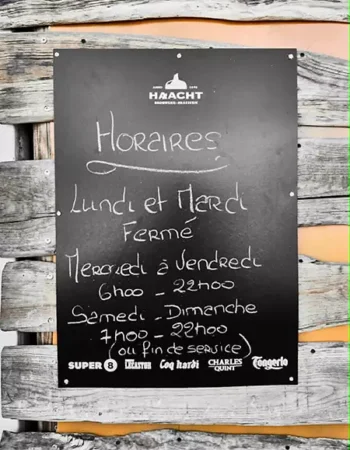 HAACHT
HORAIRES
Lundi et Mardi
Fermé
Mercredi à Vendredi
6h00 - 22h00
Samedi - Dimanche
7h00 - 22h00
(ou fin de service)
SUPER 8 LANCASTER Coq hardi CHARLES QUINT Tongerlo